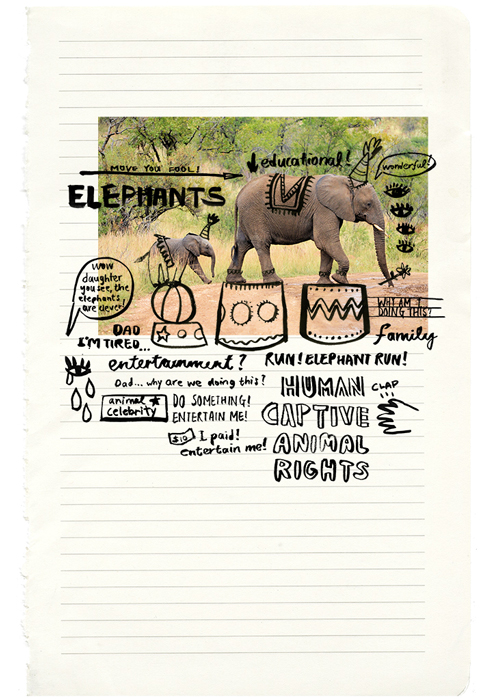 MOVE YOU FOOL!
educational!
wonderful!
ELEPHANTS
WOW
daughter
you see, the
elephants
are clever!
WHY AM I
DOING THIS?
DAD
I'M TIRED...
family
entertainment?
RUN! ELEPHANT RUN!
Dad... why are we doing this?
animal
celebrity
DO SOMETHING!
ENTERTAIN ME!
$10
I paid!
entertain me!
HUMAN
CAPTIVE
ANIMAL
RIGHTS
CLAP